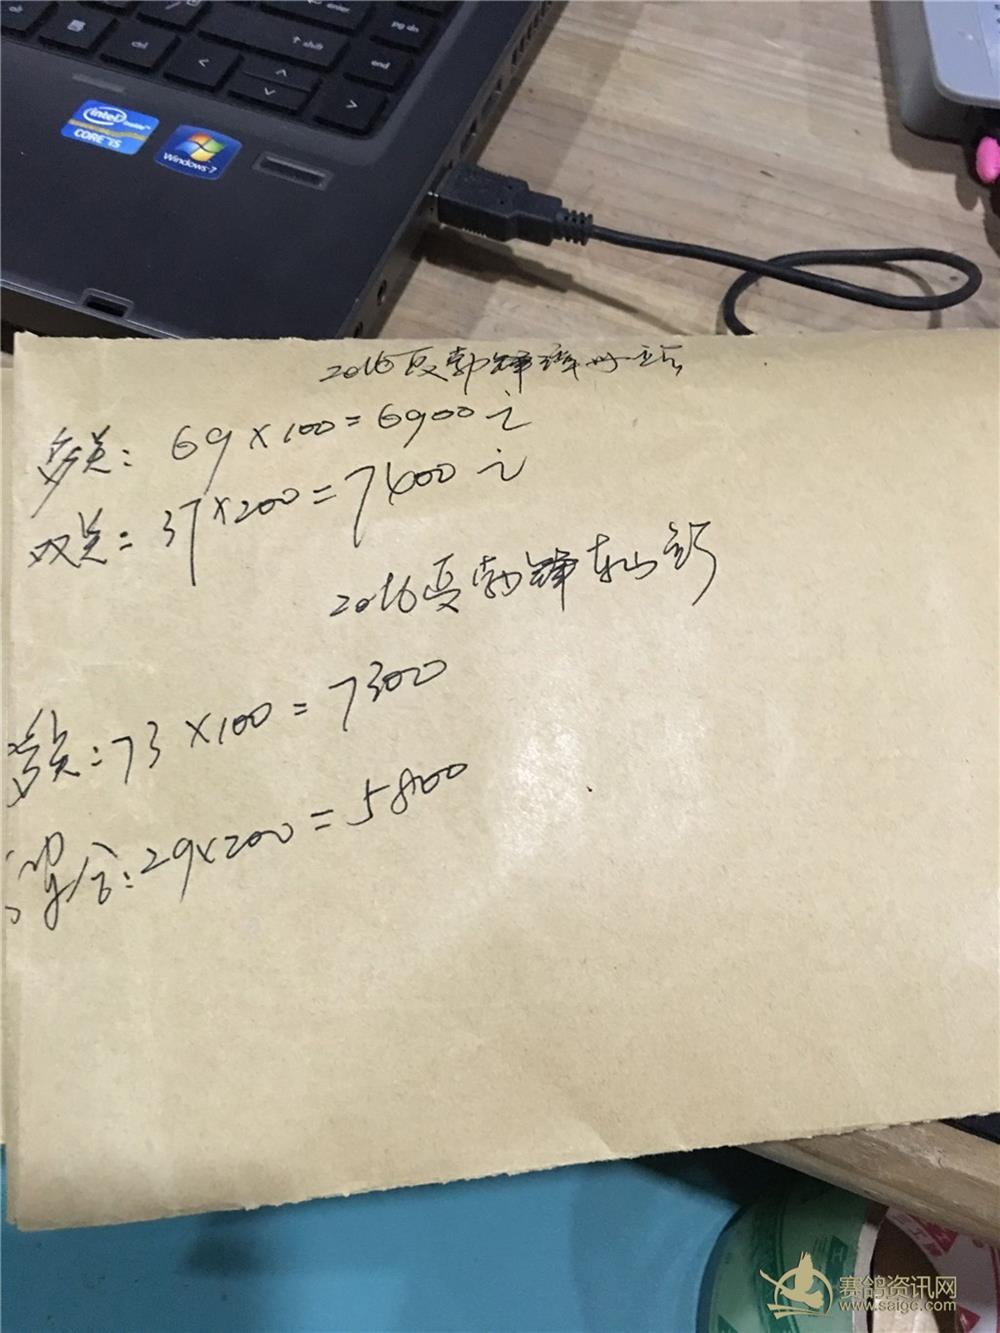 enter
pg dn
ctrl
shift
end
intel inside™
CORE i5
Windows 7
2016夏勃锋
多关: 69×100=6900元
双关: 37×200=7400元
2016夏勃锋
:73×100=7300
:29×200=5800
赛鸽资讯网
www.saigc.com